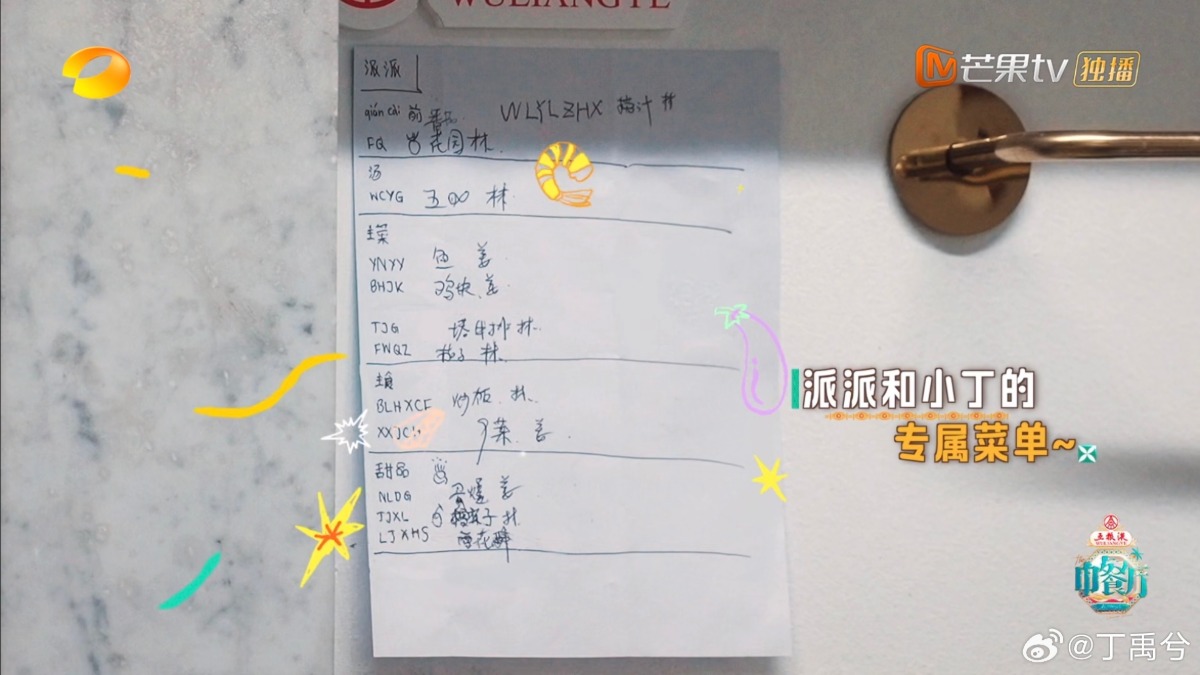 WULIANGYE
芒果tv 独播
派派
qián cài 前 WLYLZHX 指汁 林
FQ 花园 林
汤
WCYG 五 林
主菜
YNYY 鱼 姜
BHJK 鸡块 姜
TJG 塔牛排 林
FWQZ 林
主食
BLHXCF 炒饭 林
XXJC 菜 姜
甜品
NLDG 蛋糕 姜
TJXL 子 林
LJXHS 雪花酥
派派和小丁的
专属菜单~
五粮液
WULIANGYE
中餐厅
@丁禹兮